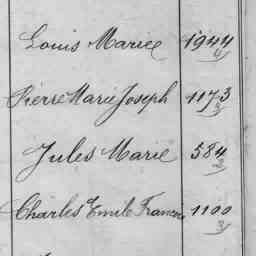 Louis Marie 1944
Pierre Marie Joseph 1173
Jules Marie 584
Charles Emile Francois 1100
3